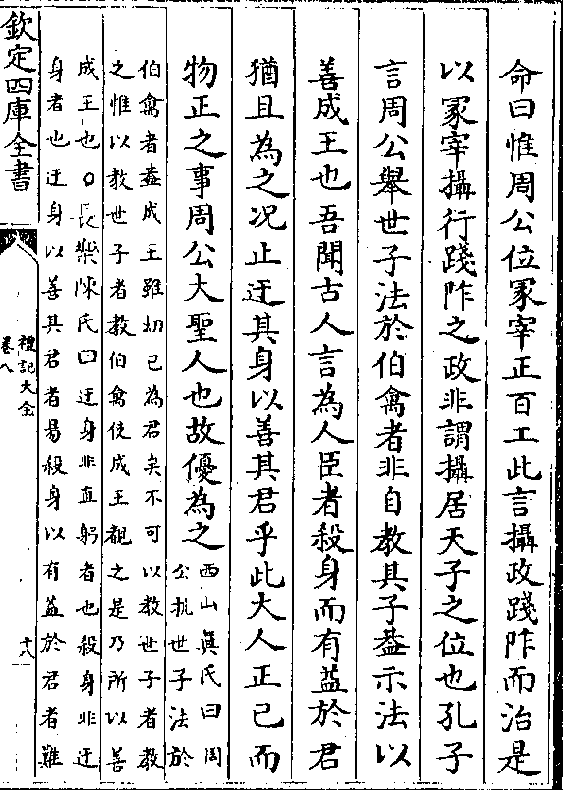 命曰惟周公位冢宰正百工此言攝政踐阼而治是
以冢宰攝行踐阼之政非謂攝居天子之位也孔子
言周公舉世子法於伯禽者非自教其子蓋示法以
善成王也吾聞古人言為人臣者殺身而有益於君
猶且為之况止迂其身以善其君乎此大人正己而
物正之事周公大聖人也故優為之
西山眞氏曰周
公抗世子法於
伯禽者葢成王雖幼已為君矣不可以教世子者教
之惟以教世子者教伯禽使成王觀之是乃所以善
成王也○長樂陳氏曰迂身非直躬者也殺身非迂
身者也迂身以善其君者易殺身以有益於君者難
欽定四庫全書
禮記大全
卷八
十八